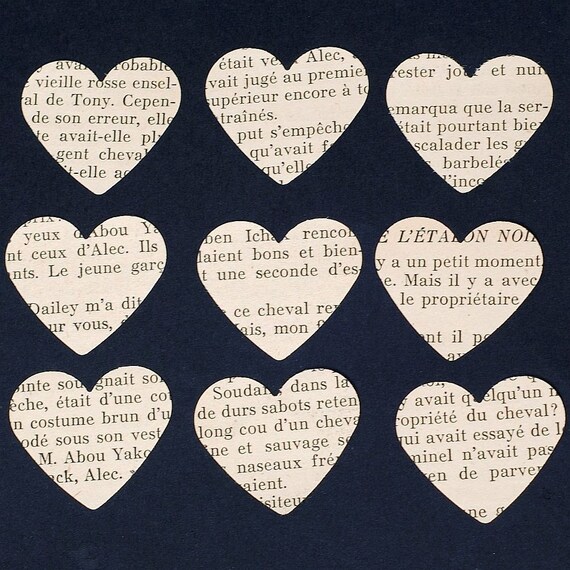 avait probable
vieille rosse ensel-
al de Tony. Cepen-
de son erreur, elle
te avait-elle plu
gent cheval
t-elle ac
était ve Alec,
vait jugé au premie
upérieur encore à to
traînés.
put s'empêche
qu'avait f
qu'elle
rester jour et nuit
emarqua que la ser-
était pourtant bie
escalader les g
barbelés
l'ince
yeux d'Abou Ya
nt ceux d'Alec. Ils
nts. Le jeune garç
Dailey m'a dit
ur vous, d
ben Ichak rencon
laient bons et bien-
t une seconde d'es
ce cheval re
ais, mon
E L'ÉTALON NOI
y a un petit moment
e. Mais il y a avec
le propriétaire
nt il p
av
ointe soulignait so
èche, était d'une co
n costume brun d'u
odé sous son vest
M. Abou Yako
ck, Alec.
Soudain dans la
de durs sabots reten
long cou d'un cheva
ine et sauvage se
naseaux fré
aient.
isiteu
y avait quelqu'un
opriété du cheval?
ui avait essayé de l
minel n'avait pas
en de parve
ne g